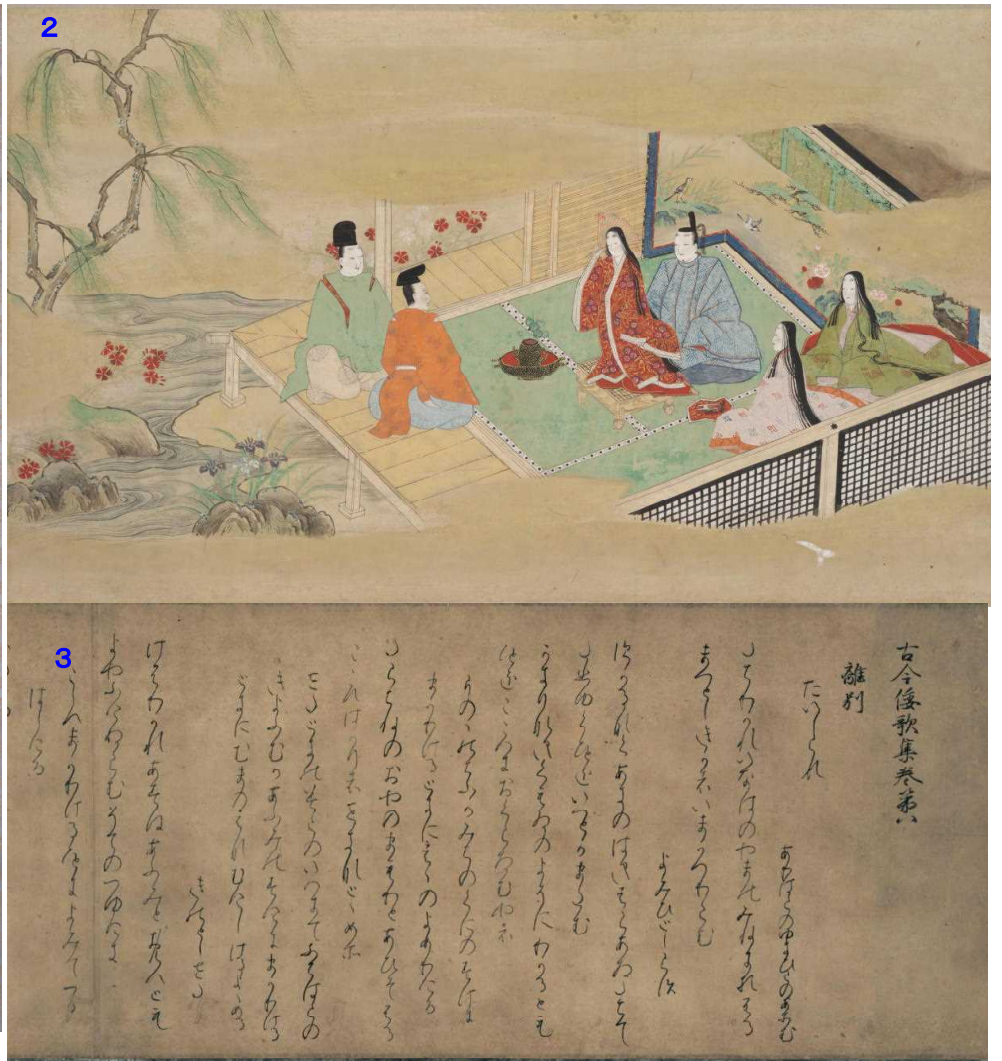 2
3
古今倭歌集巻第八
離別
たいしらす
ありはらのゆきひらのあそむ
たちわかれいなはのやまのみねにおふる
まつとしきかはいまかへりこむ
よみひとしらす
すかるなくあきのはきはらあさたちて
たひゆくひとをいつとかまたむ
かきりなきくもゐのよそにわかるとも
ひとをこゝろにおくらさむやは
をのゝちふるかみちのくにのすけに
まかりけるときにはゝのよめる
たらちねのおやのまもりとあひそふる
こゝろはかりはせきなとゝめそ
さたときのみこのいへにてふちはらの
きよふかあふみのすけにまかりける
ときにむまのはなむけしけるよめる
きのとしさた
けふわかれあすはあふみとおもへとも
よやふけぬらむそてのつゆけき
こしへまかりけるひとによみてつか
はしける